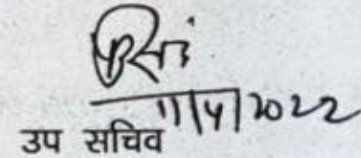 11/4/2022
उप सचिव